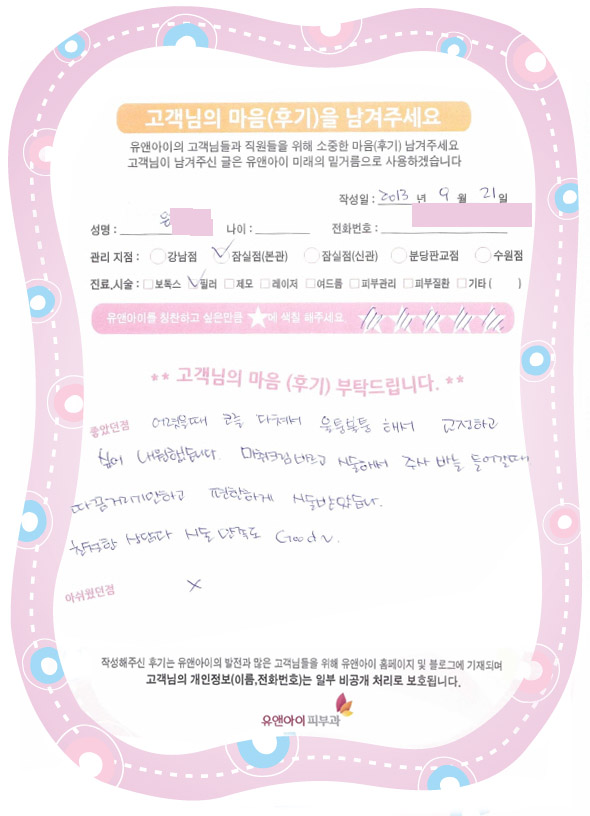 고객님의 마음(후기)을 남겨주세요
유앤아이의 고객님들과 직원들을 위해 소중한 마음(후기) 남겨주세요
고객님이 남겨주신 글은 유앤아이 미래의 밑거름으로 사용하겠습니다
작성일 : 2013 년 9 월 21 일
성명 : 윤 나이 : 전화번호 :
관리 지점 : 강남점 잠실점(본관) 잠실점(신관) 분당판교점 수원점
진료,시술 : 보톡스 필러 제모 레이저 여드름 피부관리 피부질환 기타 ( )
유앤아이를 칭찬하고 싶은만큼 ★에 색칠 해주세요.
** 고객님의 마음 (후기) 부탁드립니다. **
좋았던점 어렸을때 코를 다쳐서 울퉁불퉁 해서 교정하고
싶어 내원했습니다. 마취크림바르고 시술해서 주사 바늘 들어갈때
따끔거리기만하고 편안하게 시술받았습니다.
친절한 상담과 시술 만족도 Good.
아쉬웠던점 X
작성해주신 후기는 유앤아이의 발전과 많은 고객님들을 위해 유앤아이 홈페이지 및 블로그에 기재되며
고객님의 개인정보(이름,전화번호)는 일부 비공개 처리로 보호됩니다.
유앤아이피부과